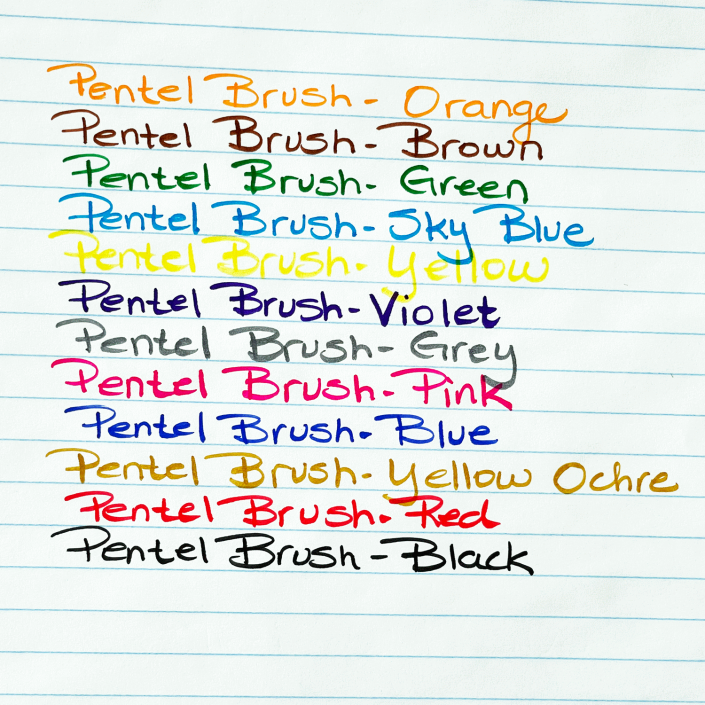 Pentel Brush - Orange
Pentel Brush - Brown
Pentel Brush - Green
Pentel Brush - Sky Blue
Pentel Brush - Yellow
Pentel Brush - Violet
Pentel Brush - Grey
Pentel Brush - Pink
Pentel Brush - Blue
Pentel Brush - Yellow Ochre
Pentel Brush - Red
Pentel Brush - Black